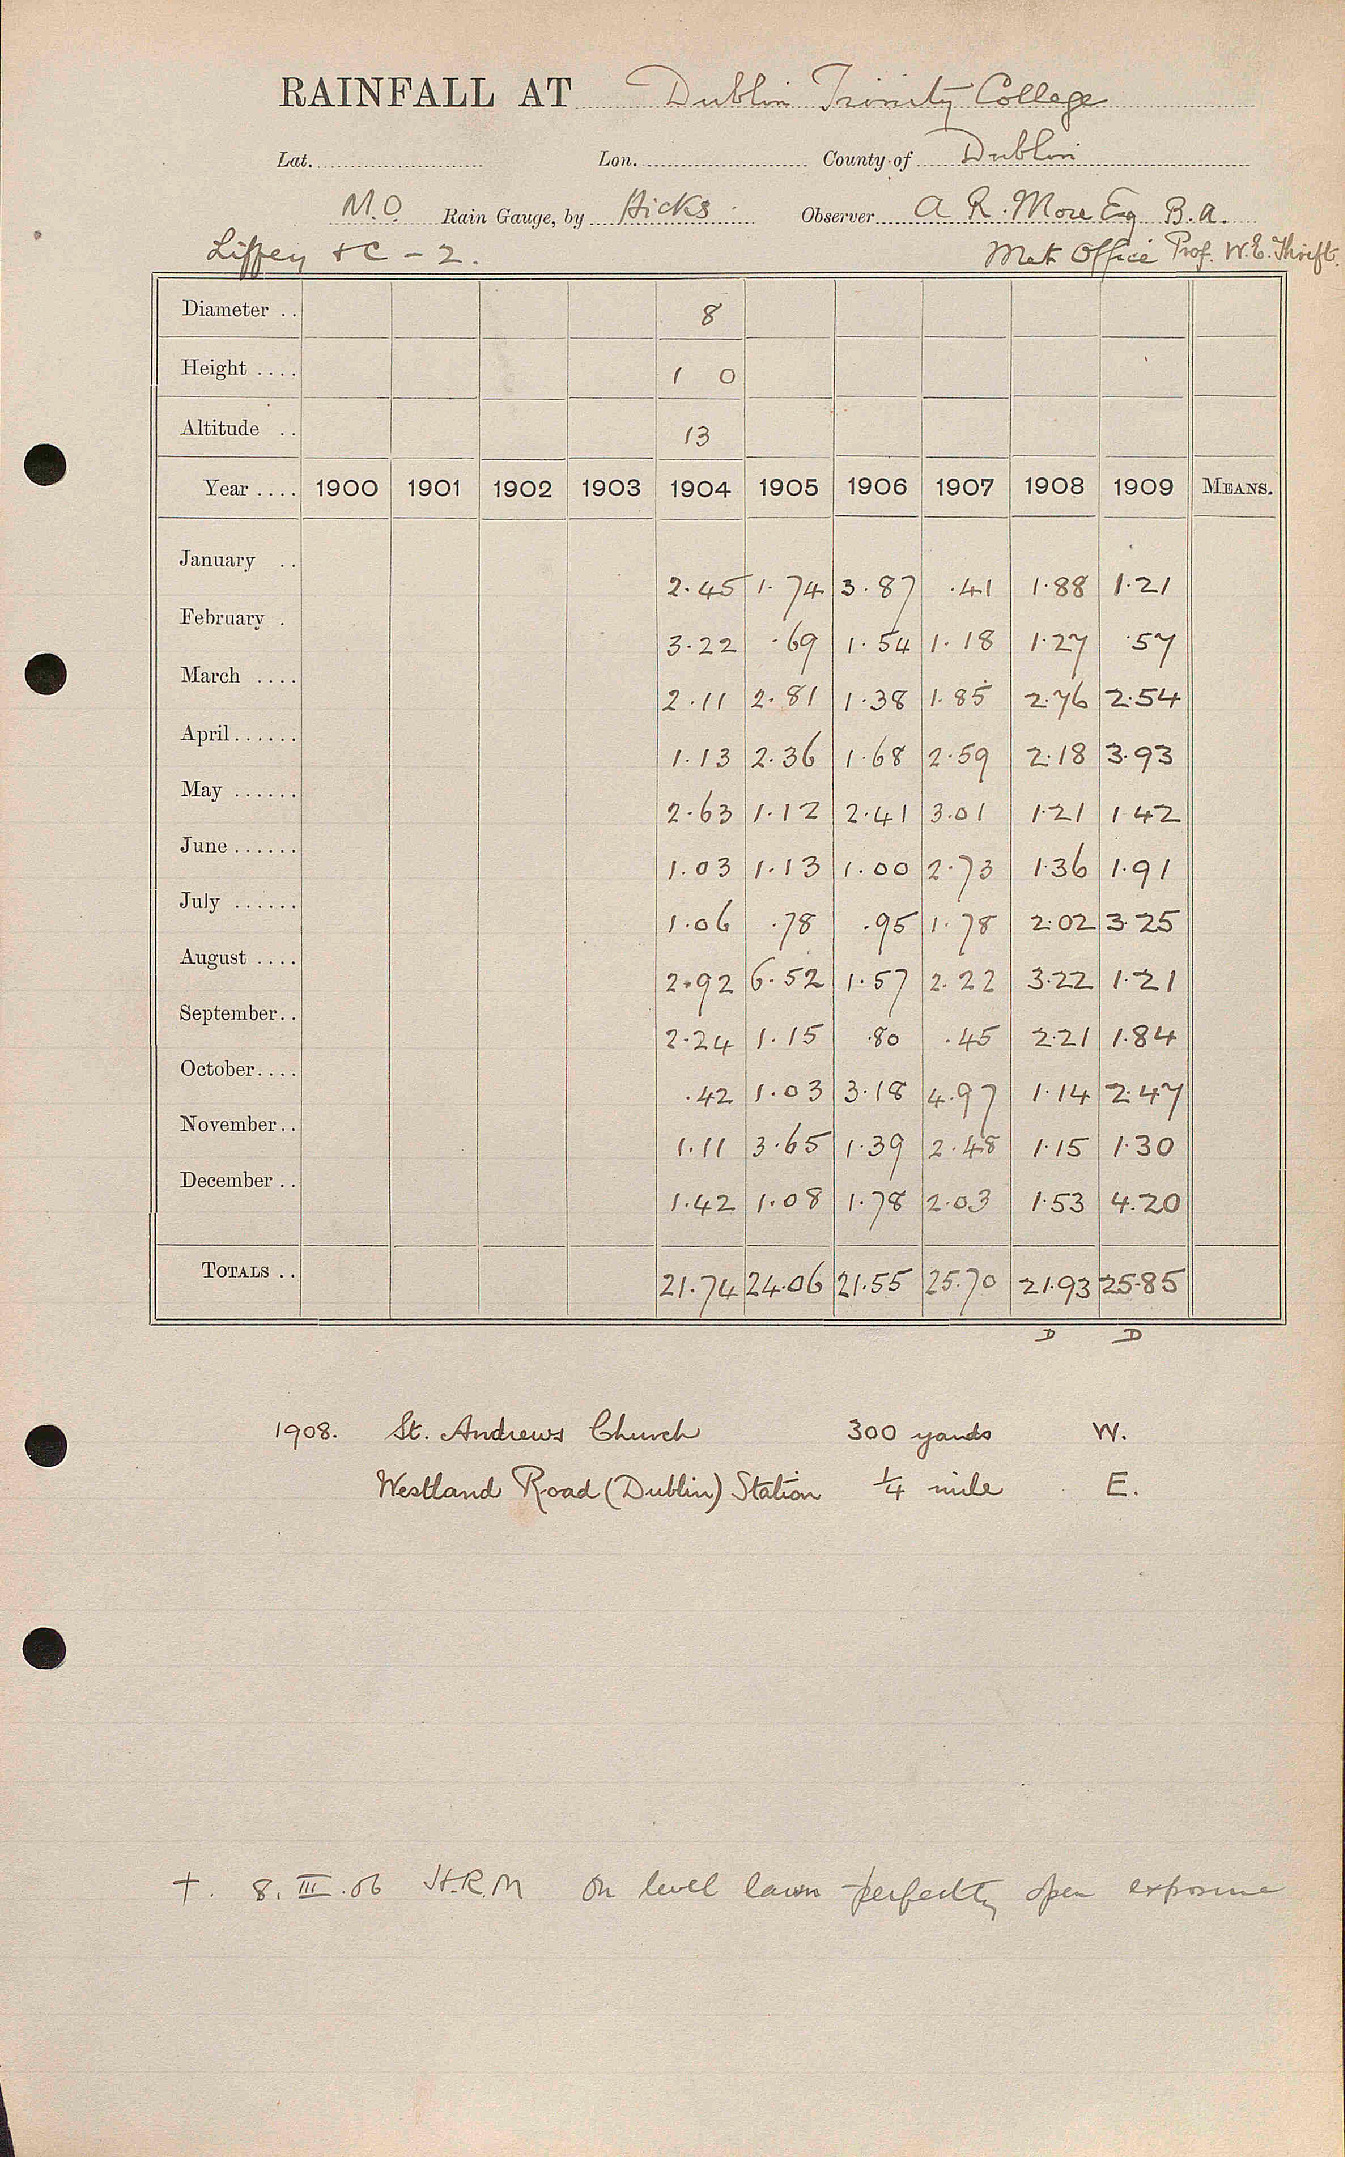 RAINFALL AT Dublin Trinity College
Lat. Lon. County of Dublin
M.O. Rain Gauge, by Hicks Observer A R. More Esq B.A.
Liffey &C - 2. Met Office Prof. W.E. Thrift.
Diameter .. 8
Height .... 1 0
Altitude .. 13
Year .... 1900 1901 1902 1903 1904 1905 1906 1907 1908 1909 MEANS.
January .. 2.45 1.74 3.87 .41 1.88 1.21
February . 3.22 .69 1.54 1.18 1.27 .57
March .... 2.11 2.81 1.38 1.85 2.76 2.54
April ...... 1.13 2.36 1.68 2.59 2.18 3.93
May ...... 2.63 1.12 2.41 3.01 1.21 1.42
June ...... 1.03 1.13 1.00 2.73 1.36 1.91
July ...... 1.06 .78 .95 1.78 2.02 3.25
August .... 2.92 6.52 1.57 2.22 3.22 1.21
September.. 2.24 1.15 .80 .45 2.21 1.84
October.... .42 1.03 3.18 4.97 1.14 2.47
November.. 1.11 3.65 1.39 2.48 1.15 1.30
December .. 1.42 1.08 1.78 2.03 1.53 4.20
TOTALS .. 21.74 24.06 21.55 25.70 21.93 25.85
D D
1908. St. Andrews Church 300 yards W.
Westland Road (Dublin) Station 1/4 mile E.
†. 8. III. 06 H.R.M On level lawn perfectly open exposure